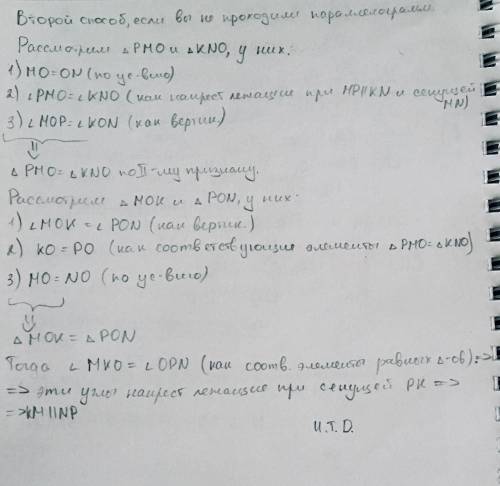 Второй способ, если вы не проходили параллелограмм.
Рассмотрим △PMO и △KNO, у них:
1) MO=ON (по ус-вию)
2) ∠PMO=∠KNO (как накрест лежащие при MP||KN и секущей MN)
3) ∠MOP=∠KON (как вертик.)
⇓
△PMO=∠KNO по II-му признаку.
Рассмотрим △MOK и △PON, у них:
1) ∠MOK = ∠PON (как вертик.)
2) KO=PO (как соответствующие элементы △PMO=△KNO)
3) MO=NO (по ус-вию)
⇓
△MOK=△PON
Тогда ∠MKO=∠OPN (как соотв. элементы равных △-ов) =>
=> эти углы накрест лежащие при секущей PK =>
=> KM||NP
Ч.Т.D.